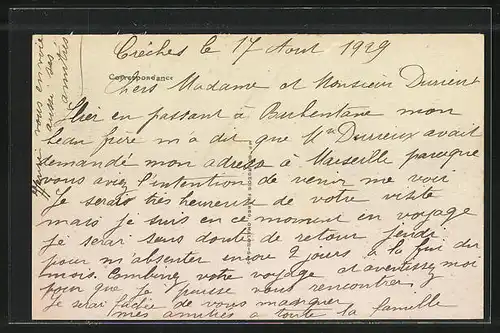 Crêches le 17 Aout 1929
Correspondance
Chers Madame et Monsieur Durieux
Hier en passant à Barbentane mon
beau frère m'a dit que Mr Durieux avait
demandé mon adresse à Marseille parceque
vous aviez l'intention de venir me voir
Je serais très heureuse de votre visite
mais je suis en ce moment en voyage
je serai sans doute de retour jeudi
pour m'absenter encore 2 jours à la fin du
mois. Combinez votre voyage et avertissez moi
pour que je puisse vous rencontrer
je serai fachée de vous manquer
mes amitiés à toute la famille
vous envoie
aussi ses
amitiés